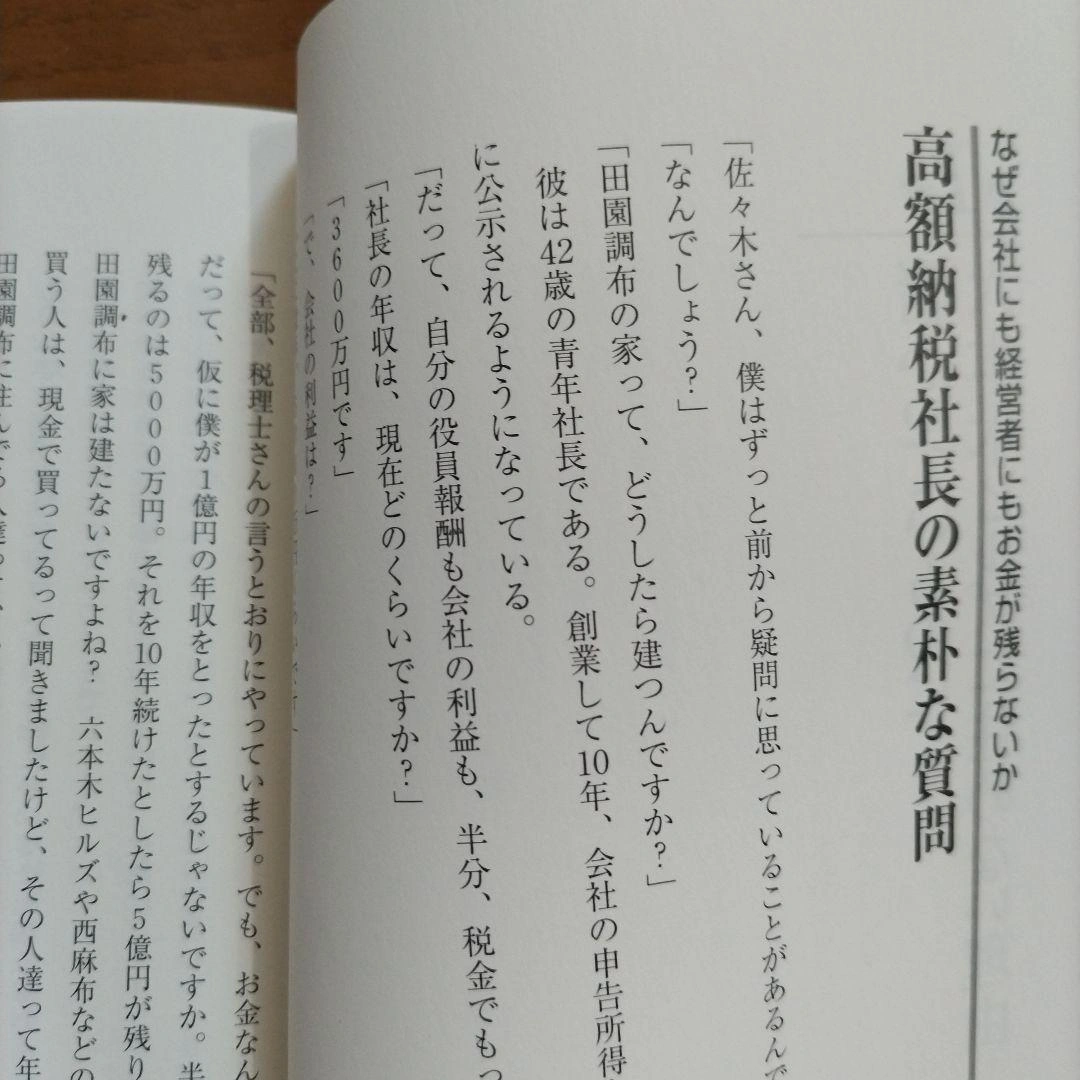 なぜ会社にも経営者にもお金が残らないか
高額納税社長の素朴な質問
「佐々木さん、僕はずっと前から疑問に思っていることがあるんで
「なんでしょう？」
「田園調布の家って、どうしたら建つんですか？」
彼は42歳の青年社長である。創業して10年、会社の申告所得
に公示されるようになっている。
「だって、自分の役員報酬も会社の利益も、半分、税金でもっ
「社長の年収は、現在どのくらいですか？」
「３６００万円です」
「で、会社の利益は？」
「全部、税理士さんの言うとおりにやっています。でも、お金なん
だって、仮に僕が１億円の年収をとったとするじゃないですか。半
残るのは５０００万円。それを10年続けたとしたら５億円が残り
田園調布に家は建たないですよね？　六本木ヒルズや西麻布などの
買う人は、現金で買ってるって聞きましたけど、その人達って年
田園調布に住んでる人達って